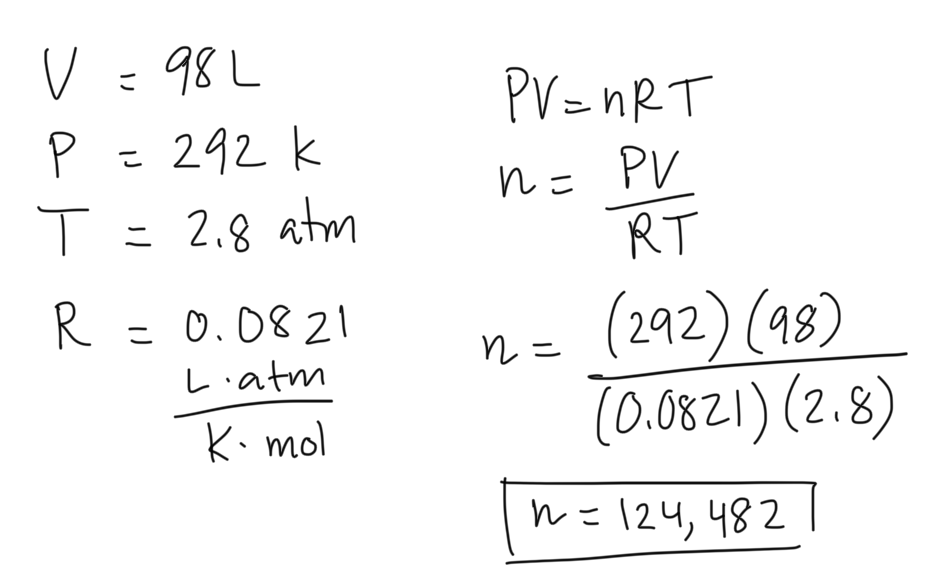 V = 98 L
P = 292 k
T = 2.8 atm
R = 0.0821
L·atm
K·mol
PV = nRT
n = PV
RT
n = (292)(98)
(0.0821)(2.8)
n = 124,482